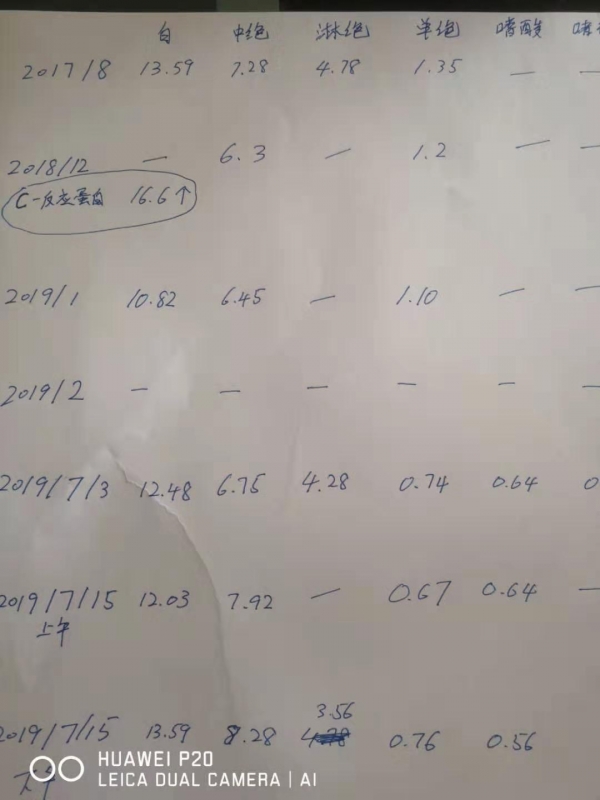 白 中绝 淋绝 单绝 嗜酸 嗜
2017/8 13.59 7.28 4.78 1.35 — —
2018/12 — 6.3 — 1.2 — —
C-反应蛋白 16.6↑
2019/1 10.82 6.45 — 1.10 — —
2019/2 — — — — — —
2019/7/3 12.48 6.75 4.28 0.74 0.64 0
2019/7/15 12.03 7.92 — 0.67 0.64 —
上午
3.56
2019/7/15 13.59 8.28 0.76 0.56
下午
HUAWEI P20
LEICA DUAL CAMERA | AI